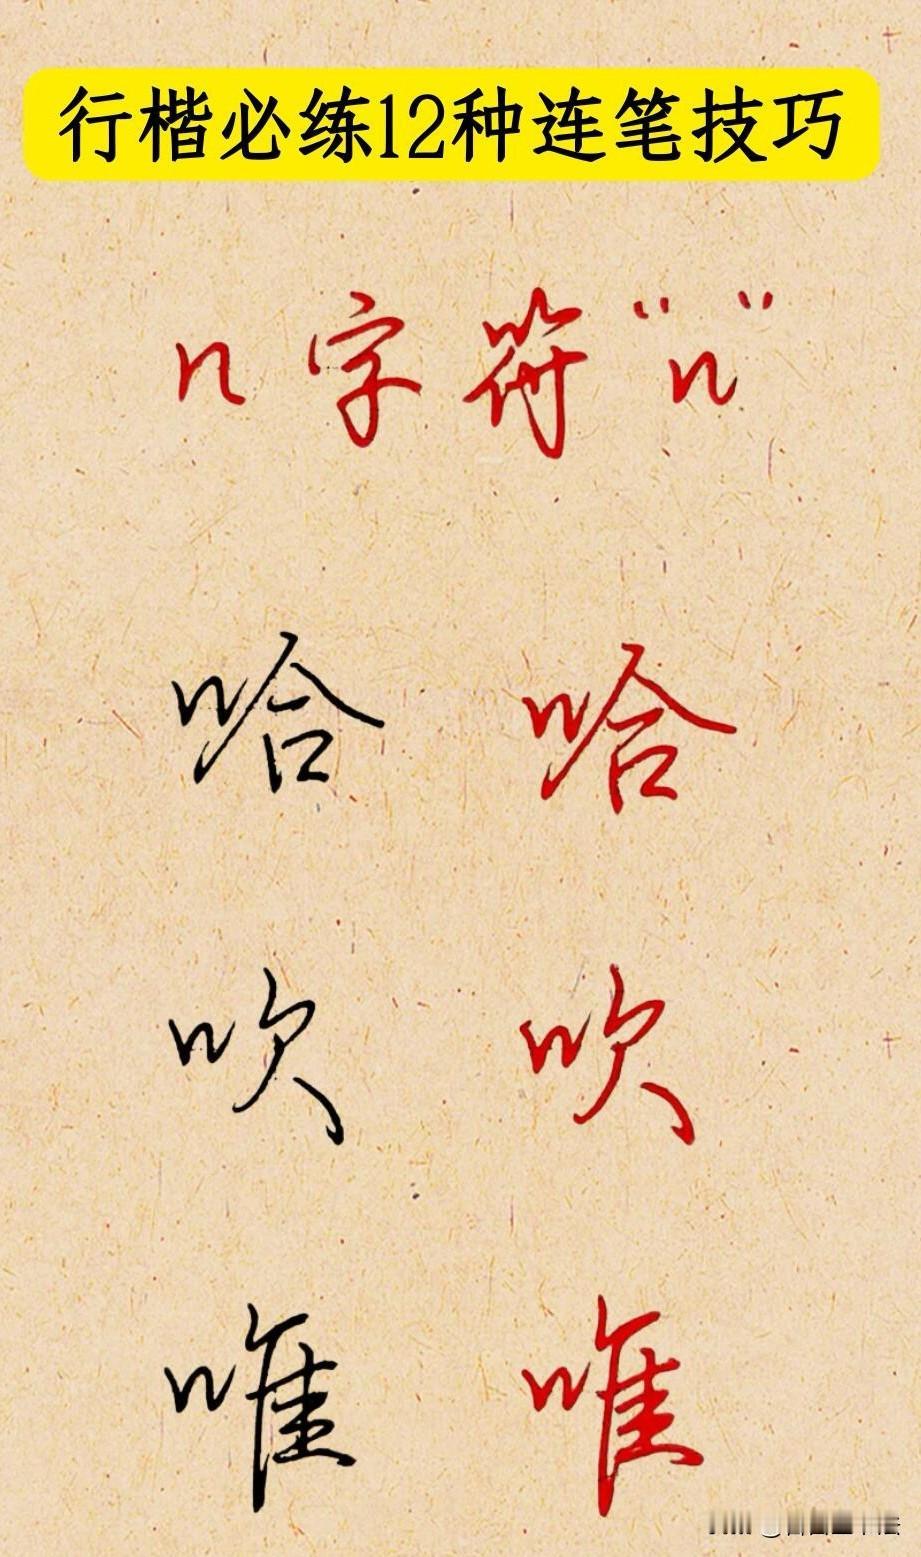 行楷必练12种连笔技巧
n 字符“n”
哈 哈
吹 吹
唯 唯